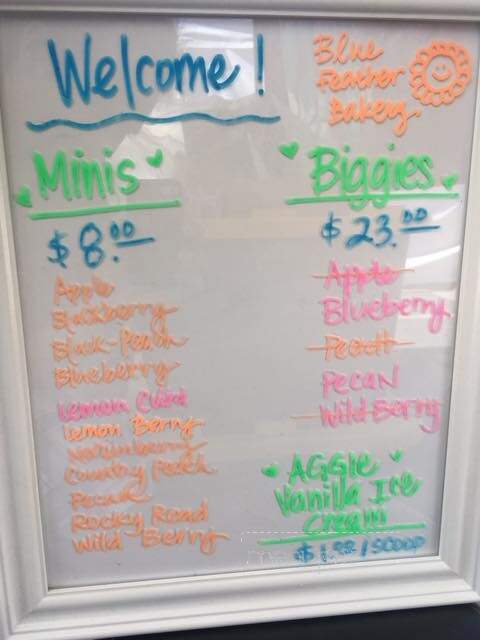 Welcome!
Blue
Feather
Bakery
Minis
$8.00
Apple
Blackberry
Black-Peach
Blueberry
Lemon Curd
Lemon Berry
Country Peach
Pecan
Rocky Road
Wild Berry
Biggies
$23.00
Apple
Blueberry
Peach
Pecan
Wild Berry
Aggie
Vanilla Ice
Cream
/scoop